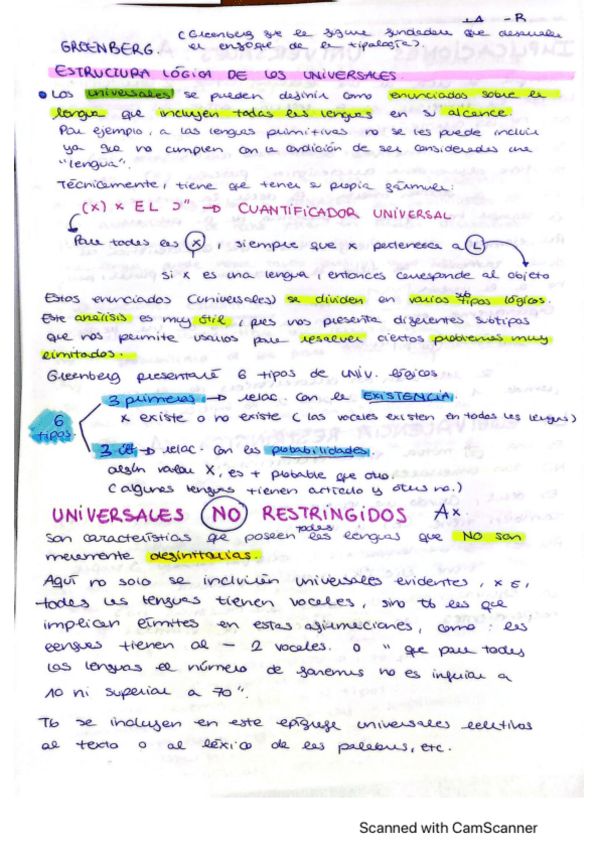 (Greenberg fue la figura fundadora que desarrolla
GREENBERG. el enfoque de la tipología).
ESTRUCTURA LÓGICA DE LOS UNIVERSALES.
• Los universales se pueden definir como enunciados sobre la
lengua que incluyen todas las lenguas en su alcance.
Por ejemplo, a las lenguas primitivas no se les puede incluir
ya que no cumplen con la condición de ser consideradas una
"lengua".
Técnicamente, tiene que tener su propia fórmula:
(x) x E L ⊃" → CUANTIFICADOR UNIVERSAL
Para todas las X, siempre que x pertenezca a L
si x es una lengua, entonces corresponde al objeto
Estos enunciados (universales) se dividen en varios sub tipos lógicos.
Este análisis es muy útil, pues nos presenta diferentes subtipos
que nos permite usarlos para resolver ciertos problemas muy
limitados.
Greenberg presentará 6 tipos de univ. lógicos.
3 primeros → relac. con la EXISTENCIA.
x existe o no existe (las vocales existen en todas las lenguas)
6
tipos.
3 últ → relac. con las probabilidades.
algún valor X, es + probable que otro.
(algunas lenguas tienen artículo y otras no.)
UNIVERSALES NO RESTRINGIDOS Ax.
Son características que poseen todas las lenguas que NO son
meramente definitorias.
Aquí no solo se incluirían universales evidentes, x E,
todas las lenguas tienen vocales, sino tb las que
implican límites en estas afirmaciones, como: las
lenguas tienen al - 2 vocales. o "que para todas
las lenguas el número de fonemas no es inferior a
10 ni superior a 70".
Tb se incluyen en este epígrafe universales relativos
al texto o al léxico de las palabras, etc.
Scanned with CamScanner